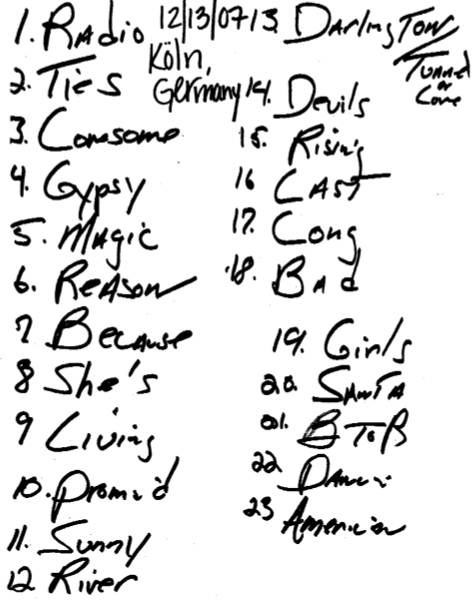 1. Radio
2. Ties
3. Lonesome
4. Gypsy
5. Magic
6. Reason
7 Because
8 She's
9 Living
10. Promis'd
11. Sunny
12 River
12/13/07
Köln,
Germany
13. Darlington
Tunnel
or
Love
14. Devils
15. Rising
16 Last
17. Long
18. Bad
19. Girls
20. Santa
21. B To R
22 Dancin
23 American